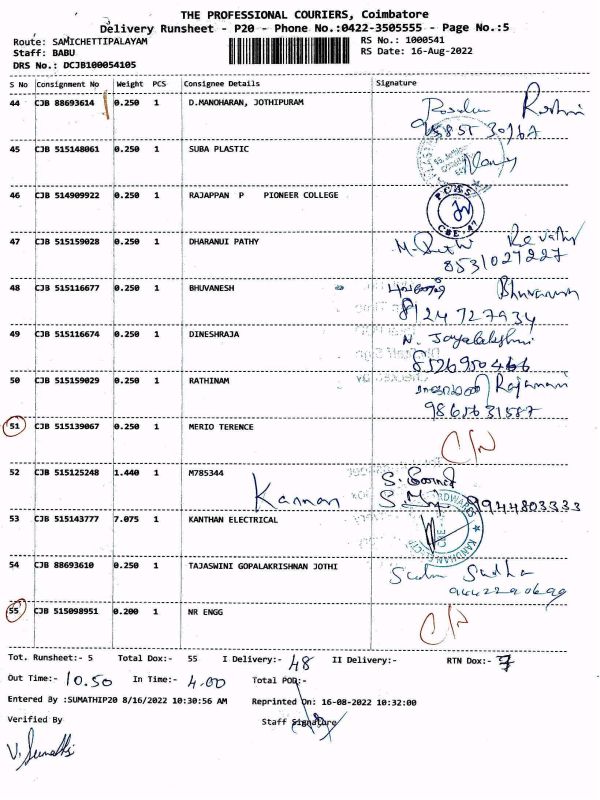 THE PROFESSIONAL COURIERS, Coimbatore
Delivery Runsheet - P20 - Phone No.:0422-3505555 - Page No.:5
Route: SAMICHETTIPALAYAM RS No.: 1000541
Staff: BABU RS Date: 16-Aug-2022
DRS No.: DCJB100054105
S No Consignment No Weight PCS Consignee Details Signature
44 CJB 88693614 0.250 1 D.MANOHARAN, JOTHIPURAM
45 CJB 515148061 0.250 1 SUBA PLASTIC
46 CJB 514909922 0.250 1 RAJAPPAN P PIONEER COLLEGE
47 CJB 515159028 0.250 1 DHARANUI PATHY Revathy
8531027227
48 CJB 515116677 0.250 1 BHUVANESH
8124727934
49 CJB 515116674 0.250 1 DINESHRAJA N. Jayalakshmi
8526950466
50 CJB 515159029 0.250 1 RATHINAM Rajamani
9865631587
51 CJB 515139067 0.250 1 MERIO TERENCE C/N
52 CJB 515125248 1.440 1 M785344
Kannan 9944803333
53 CJB 515143777 7.075 1 KANTHAN ELECTRICAL
54 CJB 88693610 0.250 1 TAJASWINI GOPALAKRISHNAN JOTHI Sudha
9442290699
55 CJB 515098951 0.200 1 NR ENGG C/N
Tot. Runsheet:- 5 Total Dox:- 55 I Delivery:- 48 II Delivery:- RTN Dox:- 7
Out Time:- 10.50 In Time:- 4.00 Total POD:-
Entered By :SUMATHIP20 8/16/2022 10:30:56 AM Reprinted On: 16-08-2022 10:32:00
Verified By Staff Signature
V. Sumathi